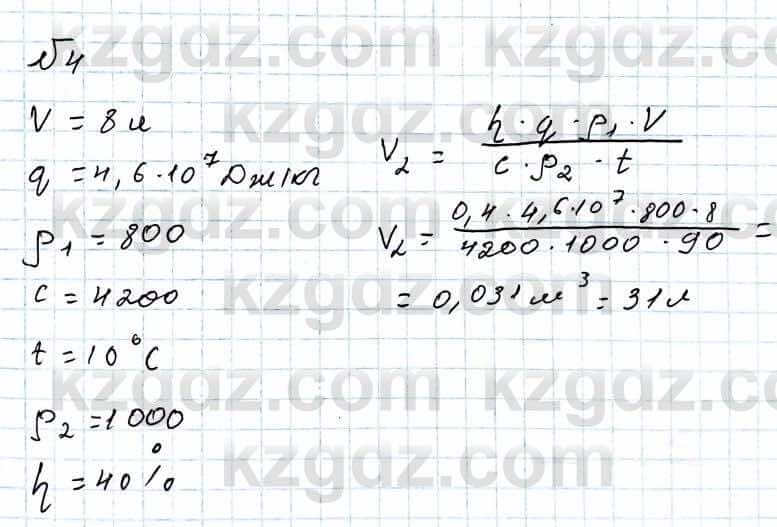 №4
V = 8 л
q = 4,6·10⁷ Дж/кг
ρ₁ = 800
c = 4200
t = 10°C
ρ₂ = 1000
η = 40%
V₂ = η·q·ρ₁·V / c·ρ₂·t
V₂ = 0,4·4,6·10⁷·800·8 / 4200·1000·90 =
= 0,031 м³ = 31 л
kzgdz.com
kzgdz.com
kzgdz.com
kzgdz.com
kzgdz.com
kzgdz.com
kzgdz.com
kzgdz.com